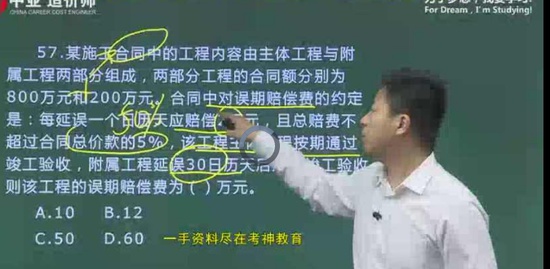 中业 造价师
CHINA CAREER COST ENGINEER
For Dream, I'm Studying!
57.某施工合同中的工程内容由主体工程与附
属工程两部分组成，两部分工程的合同额分别为
800万元和200万元，合同中对误期赔偿费的约定
是：每延误一个日历天应赔偿 元，且总赔费不
超过合同总价款的5%，该工程主 程按期通过
竣工验收，附属工程延误30日历天后 工验收
则该工程的误期赔偿费为( )万元。
A.10 B.12
C.50 D.60
一手资料尽在考神教育